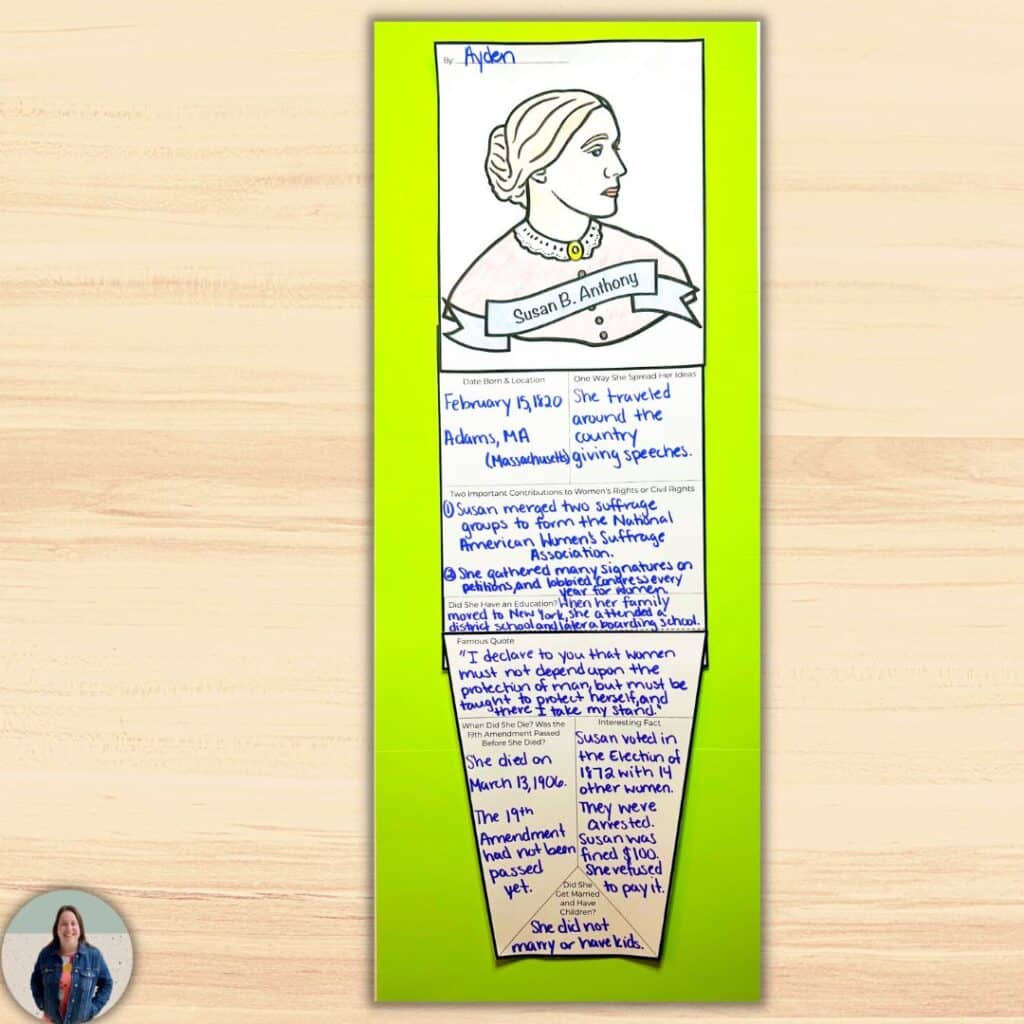 By Ayden
Susan B. Anthony
Date Born & Location
February 15, 1820
Adams, MA
(Massachusetts)
One Way She Spread Her Ideas
She traveled
around the
country
giving speeches.
Two Important Contributions to Women's Rights or Civil Rights
① Susan merged two suffrage
groups to form the National
American Women's Suffrage
Association.
② She gathered many signatures on
petitions, and lobbied Congress every
year for women.
Did She Have an Education? When her family
moved to New York, she attended a
district school and later a boarding school.
Famous Quote
"I declare to you that women
must not depend upon the
protection of man, but must be
taught to protect herself, and
there I take my stand."
When Did She Die? Was the
19th Amendment Passed
Before She Died?
She died on
March 13, 1906.
The 19th
Amendment
had not been
passed
yet.
Interesting Fact
Susan voted in
the Election of
1872 with 14
other women.
They were
arrested.
Susan was
fined $100.
She refused
to pay it.
Did She
Get Married
and Have
Children?
She did not
marry or have kids.